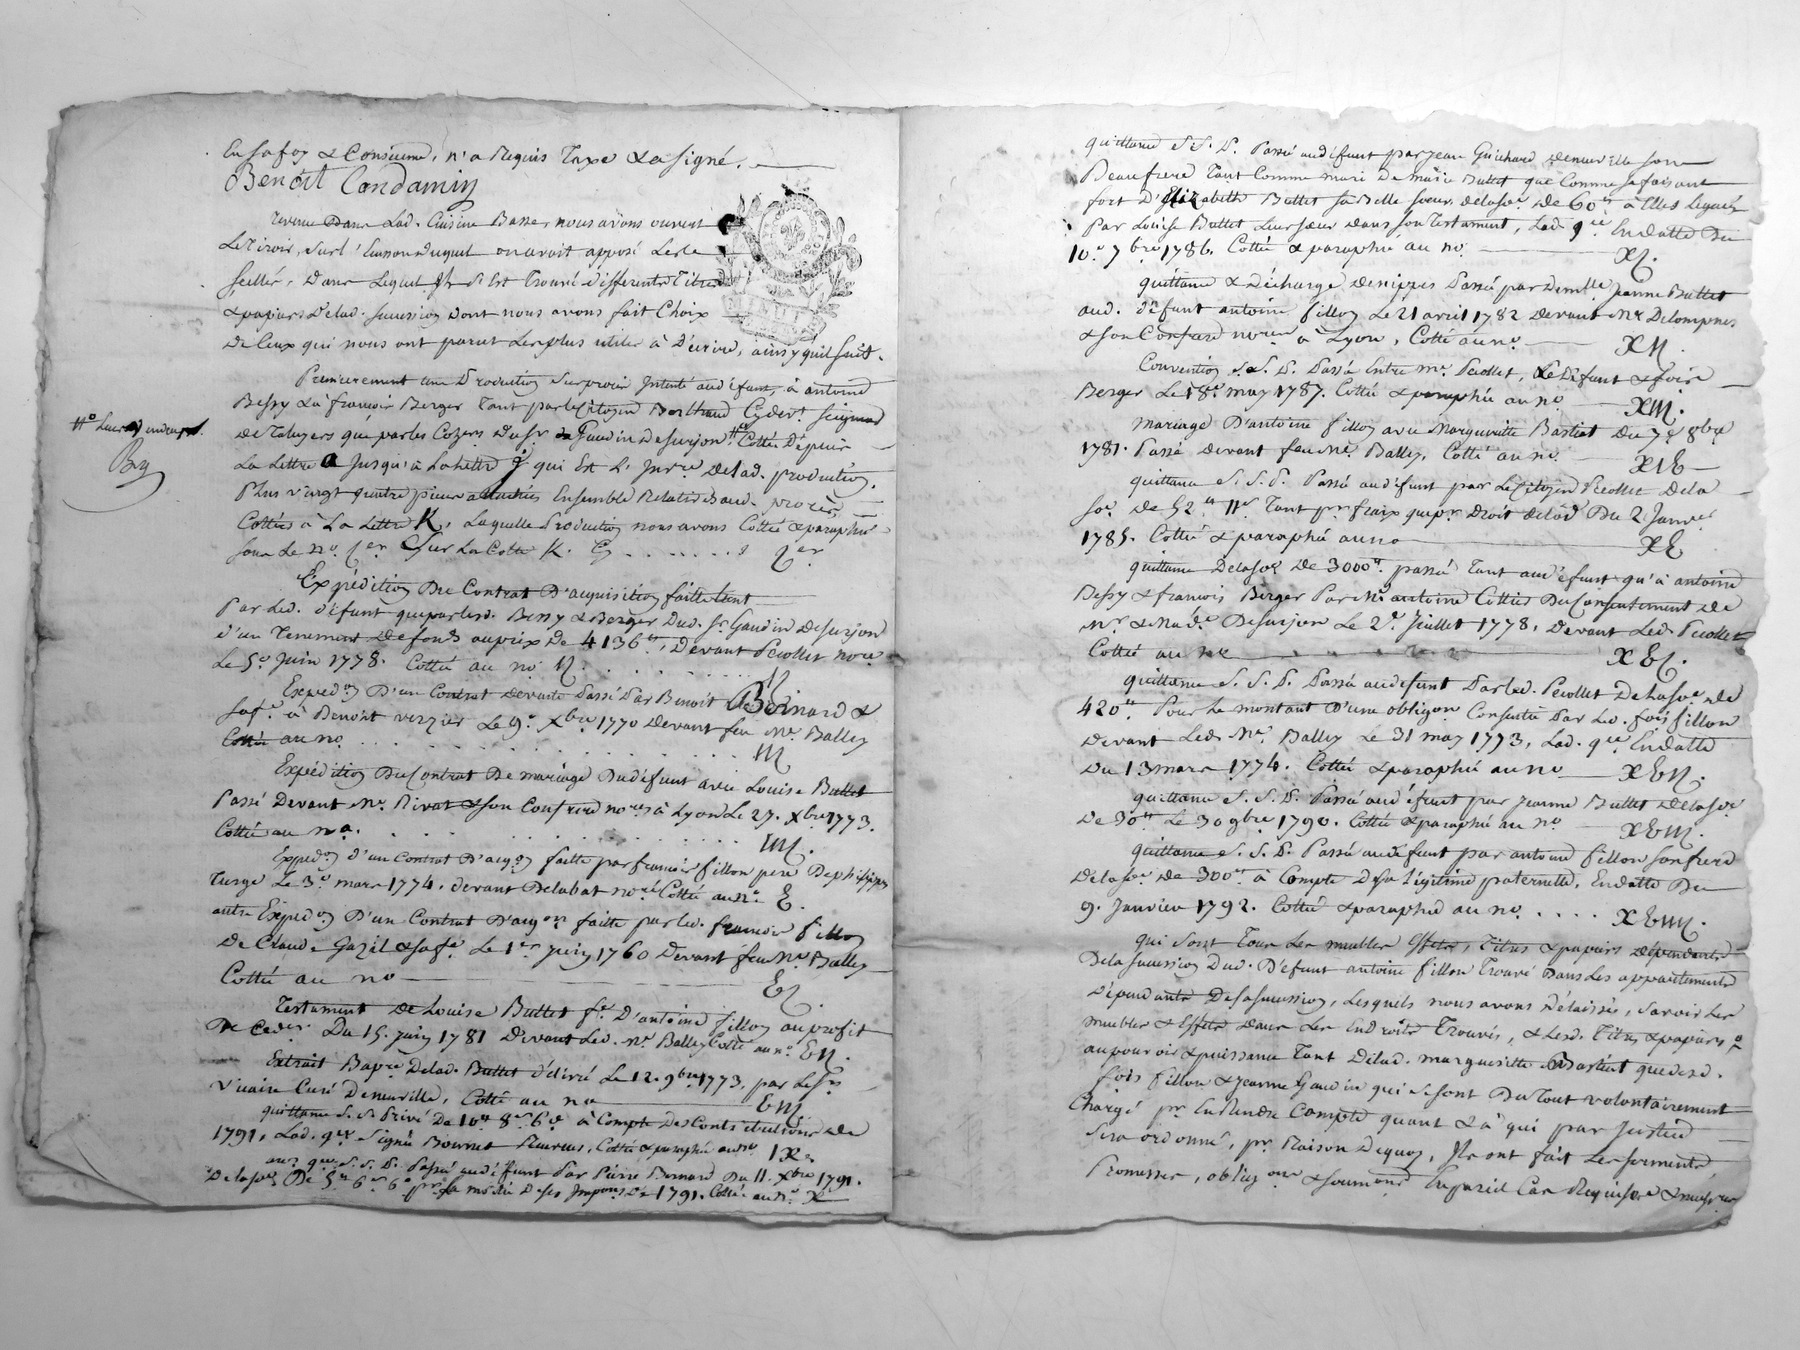 En sa foy & Conscience, n'a Requis Taxe & a signé.
Benoit Condamin
revenu Dans Lad. Cuisine Basse, nous avons ouvert
Le Tiroir, sur l' duquel on avoit apposé Le
scellé, Dans Lequel Il s'Est Trouvé différents Titres
& papiers Delad. succession Dont nous avons fait Choix
De Ceux qui nous ont parut Les plus utiles à Décrire, ainsy qu'il suit.
Premierement une Production Sur procès Intenté aud. défunt, à antoine
Bessy & à françois Berger Tant par Le Citoyen Berthaud Cydevt. seigneur
de Taluyers que par les Cohers Du Sr. Gaudin Desurjon Cottée Depuis
La Lettre a Jusqu'à La Lettre qui Est L' Delad. production.
Plus vingt quatre pieces attachées Ensemble Relatives aud. procès
Cottées à La Lettre K, Laquelle Production nous avons Cotté & paraphé
sous Le no. 1er Sur La Cotte K. 1er
Expédition Du Contrat D'acquisition faitte tant
Par Led. défunt que par Lesd. Bessy & Berger Dud. Sr. Gaudin Desurjon
d'un Tenement De fonds au prix De 4136lt, Devant Peiollet nore
Le 5e Juin 1778. Cotté au no. II. II
Expedon D'un Contrat De vente Passé Par Benoit Bernard &
sa fe. à Benoit verzier Le 9e Xbre 1770 Devant feu Me. Balley
Cotté au no. III
Expédition Du Contrat De mariage Du défunt avec Louise Buttet
Passé Devant Me. Rivat & son Confrere nores à Lyon Le 27. Xbre 1773.
Cotté au no. IIII.
Expedon d'un Contrat D'aqon faitte par françois fillon pere De
Turge Le 3e mars 1774. devant Delabat nore Cotté au no. E.
autre Expedon D'un Contrat D'aqon faitte par led. francois fillon
De Claude Gazil & sa fe. Le 1er Juin 1760 Devant feu Me. Balley
Cotté au no EI.
Testament De Louise Buttet fe. D'antoine fillon au profit
De Cedr. Du 15. Juin 1781 Devant Led. Me. Balley Cotté au no. EII.
Extrait Bapre. Delad. Buttet délivré Le 12. 9bre 1773, par Le Sr.
vicaire Curé Deneuville, Cotté au no EIII
quittance S. S. Privé De 10lt 8s. 6d. à Compte Des Contributions De
1791, Lad. qce Signé Bournet Receveur, Cotté & paraphé au no. IX.
autr. qce S. S. P. Passé au défunt Par Pierre Bernard Du 11. Xbre 1791.
De la soe. De 5lt 6s 6d. pr. La moitié Des Imponons De 1791. Cotté au no. X
No. Lucray
Bey
quittance S. S. P. Passé au défunt par Jean Guichard Deneuville son
Beaufrere Tant Comme mari De Marie Buttet que Comme se faisant
fort D'Elizabeth Buttet sa Belle soeur, de la soe. De 60lt a Elles Leguée
Par Louise Buttet Leur soeur dans son Testament, Lad. qce En datte Du
10.e 7bre 1786. Cotté & paraphé au no. XI.
quittance & Décharge De nippes Passé par Demlle Jeanne Buttet
aud. défunt antoine fillon Le 21 avril 1782 Devant Me. Delompnes
& son Confrere nores à Lyon, Cotté au no. XII.
Convention S. S. P. Passé Entre Me. Peiollet, Le Défunt & fois
Berger Le 18e may 1787. Cotté & paraphé au no XIII.
mariage D'antoine fillon avec Marguerite Bastiat Du 7e 8bre
1781. Passé Devant feu Me. Balley, Cotté au no XIE
quittance S. S. P. Passé au défunt par Le Citoyen Peiollet De la
soe. De 52lt 11s Tant pr. fraix que pr. Droit de Du 2 Janver
1785. Cotté & paraphé au no XE
quittance De la soe. De 3000lt. passé Tant au défunt qu'à antoine
Bessy & francois Berger Par Me antoine Du Consentement De
Mr. & Made. Desurjon Le 2e Juillet 1778, Devant Led. Peiollet
Cottée au no XEI.
quittance S. S. P. Passé au défunt Par led. Peiollet De La soe. De
420lt. Pour Le montant D'une obligon Consentie Par Led. fois fillon
Devant Led. Me. Balley Le 31 may 1773, Lad. qce En datte
Du 13 mars 1774. Cotté & paraphé au no XEII.
quittance S. S. P. Passé au défunt par Jeanne Buttet De la soe
De 30lt Le 30 9bre 1790. Cotté & paraphé au no XEIII.
quittance S. S. P. Passé au défunt par antoine fillon son frere
De la soe De 300lt à Compte De sa Légitime paternelle, En datte Du
9. Janvier 1792. Cotté & paraphé au no. XEIIII.
qui sont Tous Les meubles Effets, Titres & papiers dépendants
De la succession Dud. Défunt antoine fillon Trouvé Dans Les appartements
Dépendants De sa succession, Lesquels nous avons Délaissés, Savoir Les
meubles & Effets dans Les Endroits Trouvés, & Lesd. Titres & papiers
au pouvoir & puissance Tant Delad. marguerite Bastiat que desd.
fois fillon & Jeanne Gaudin qui se sont Du Tout volontairement
Chargé pr. En Rendre Compte quant & à qui par Justice
Sera ordonné, pr. Raison Dequoy, Ils ont fait Les serments
Promesses, obligons & soumons En pareil Cas Requises &